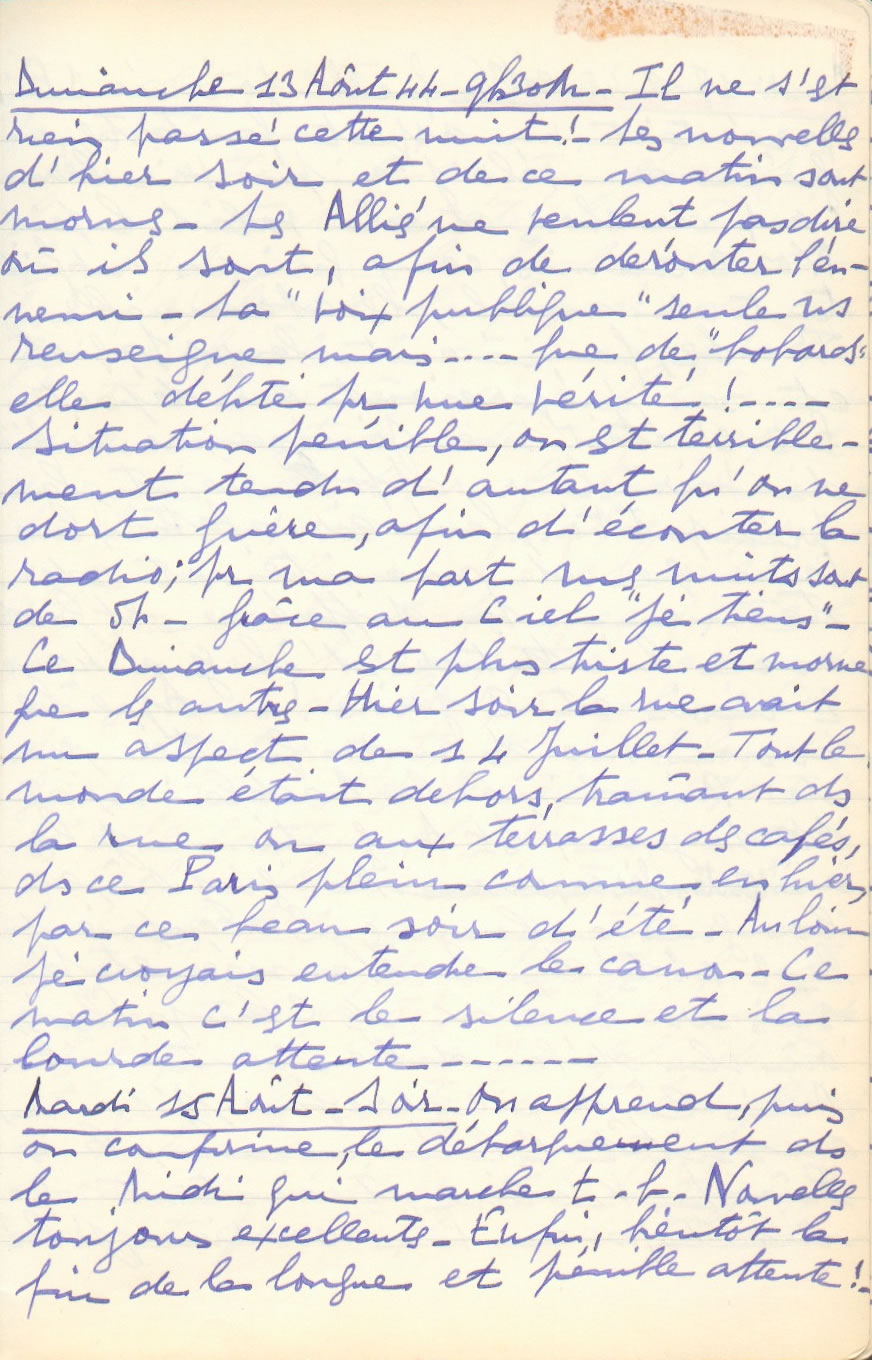 Dimanche 13 Août 44 - 9h30m - Il ne s'est
rien passé cette nuit ! - Les nouvelles
d'hier soir et de ce matin sont
mornes - Les Alliés ne veulent pas dire
où ils sont, afin de dérouter l'en-
nemi - La "voix publique" seule ns
renseigne mais .... que de "bobards"
elle débite pr une vérité ! ----
Situation pénible, on est terrible-
ment tendu d'autant qu'on ne
dort guère, afin d'écouter la
radio ; pr ma part mes nuits sont
de 5h - grâce au Ciel "je tiens" -
Ce Dimanche est plus triste et morne
que les autres - Hier soir la rue avait
un aspect de 14 Juillet - Tout le
monde était dehors, traînant ds
la rue ou aux terrasses des cafés,
ds ce Paris plein comme en hiver,
par ce beau soir d'été - Au loin
je croyais entendre le canon - Ce
matin c'est le silence et la
lourde attente ------
Mardi 15 Août - Soir - On apprend, puis
on confirme, le débarquement ds
le Midi qui marche t. b. - Nouvelles
toujours excellentes - Enfin, bientôt la
fin de la longue et pénible attente ! -